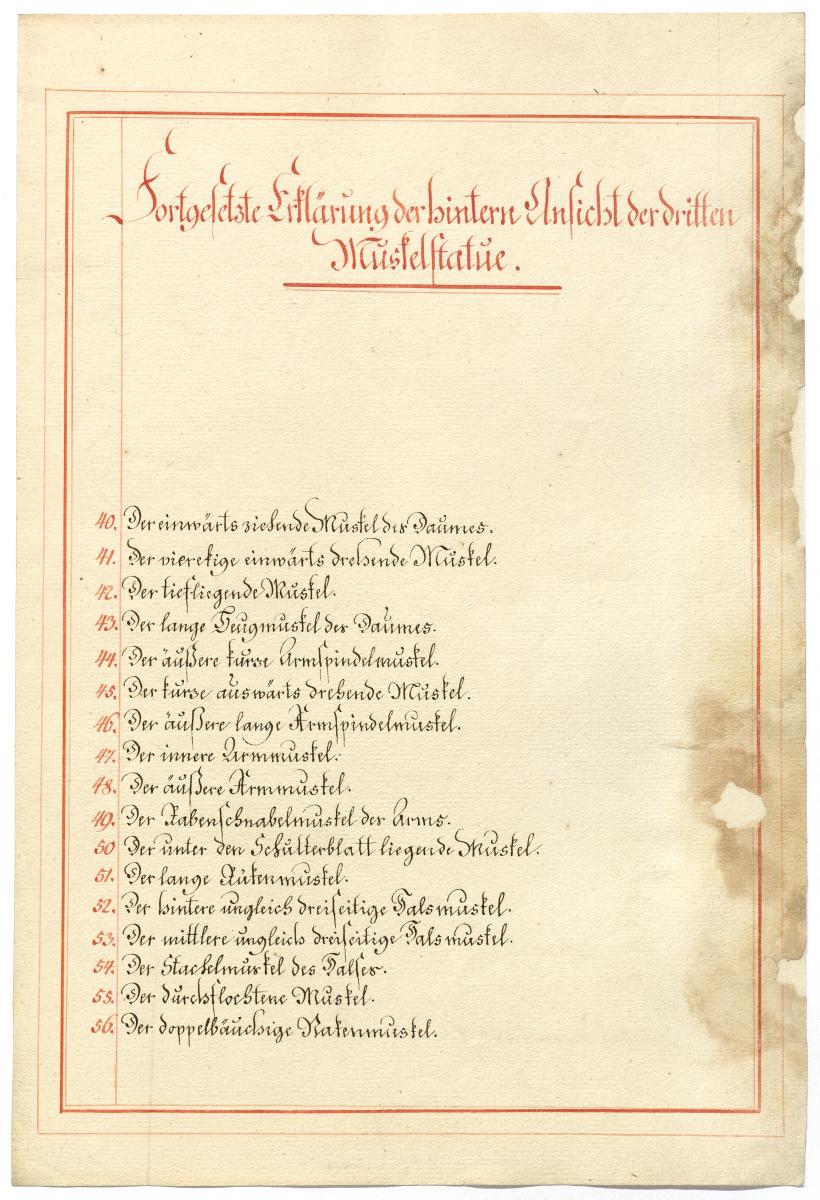 Fortgesetzte Erklärung der hintern Ansicht der dritten
Muskelstatue.
40. Der einwärts ziehende Muskel des Daumes.
41. Der vierekige einwärts drehende Muskel.
42. Der tiefliegende Muskel.
43. Der lange Beugmuskel des Daumes.
44. Der äußere kurze Armspindelmuskel.
45. Der kurze auswärts drehende Muskel.
46. Der äußere lange Armspindelmuskel.
47. Der innere Armmuskel.
48. Der äußere Armmuskel.
49. Der Rabenschnabelmuskel des Arms.
50 Der unter den Schulterblatt liegende Muskel.
51. Der lange Rükenmuskel.
52. Der hintere ungleich dreiseitige Halsmuskel.
53. Der mittlere ungleich dreiseitige Halsmuskel.
54. Der Stachelmuskel des Halses.
55. Der durchflochtene Muskel.
56. Der doppelbäuchige Nakenmuskel.